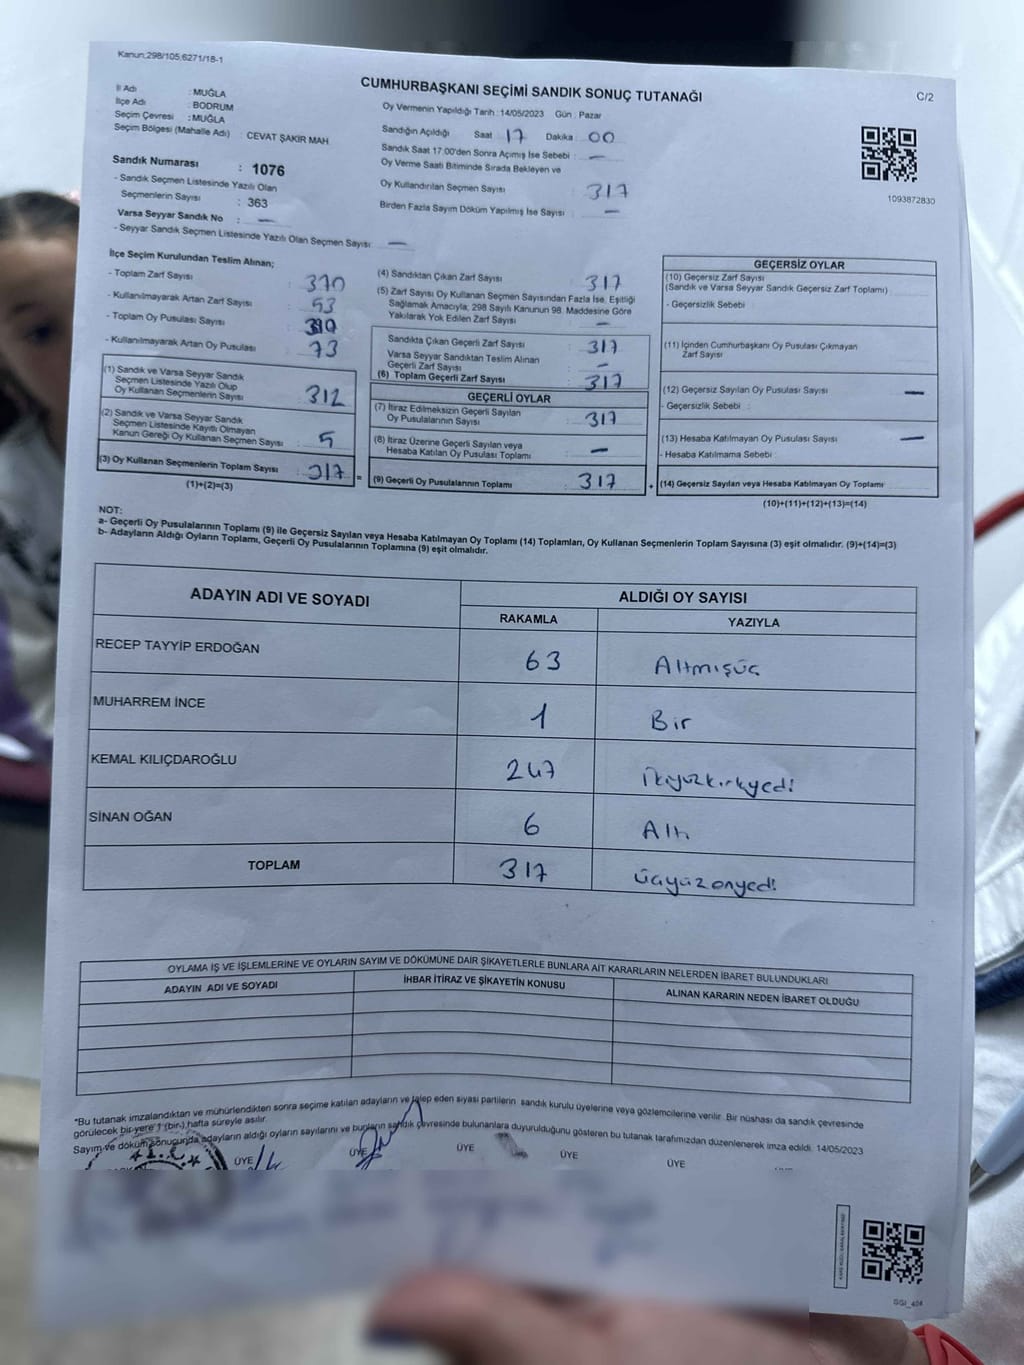 Kanun.298/105,6271/18-1
CUMHURBAŞKANI SEÇİMİ SANDIK SONUÇ TUTANAĞI
C/2
İl Adı : MUĞLA
İlçe Adı : BODRUM
Seçim Çevresi : MUĞLA
Seçim Bölgesi (Mahalle Adı) : CEVAT ŞAKİR MAH
Oy Vermenin Yapıldığı Tarih : 14/05/2023 Gün : Pazar
Sandığın Açıldığı Saat 17 Dakika : 00
Sandık Saat 17:00'den Sonra Açımış İse Sebebi : —
Oy Verme Saati Bitiminde Sırada Bekleyen ve
Oy Kullandırılan Seçmen Sayısı : 317
Birden Fazla Sayım Döküm Yapılmış İse Sayısı : —
1093872830
Sandık Numarası : 1076
- Sandık Seçmen Listesinde Yazılı Olan
Seçmenlerin Sayısı : 363
Varsa Seyyar Sandık No : —
- Seyyar Sandık Seçmen Listesinde Yazılı Olan Seçmen Sayısı: —
İlçe Seçim Kurulundan Teslim Alınan;
- Toplam Zarf Sayısı : 370
- Kullanılmayarak Artan Zarf Sayısı : 53
- Toplam Oy Pusulası Sayısı :
- Kullanılmayarak Artan Oy Pusulası : 73
(1) Sandık ve Varsa Seyyar Sandık
Seçmen Listesinde Yazılı Olup
Oy Kullanan Seçmenlerin Sayısı : 312
(2) Sandık ve Varsa Seyyar Sandık
Seçmen Listesinde Kayıtlı Olmayan
Kanun Gereği Oy Kullanan Seçmen Sayısı : 5
(3) Oy Kullanan Seçmenlerin Toplam Sayısı : 317 =
(1)+(2)=(3)
(4) Sandıktan Çıkan Zarf Sayısı : 317
(5) Zarf Sayısı Oy Kullanan Seçmen Sayısından Fazla İse, Eşitliği
Sağlamak Amacıyla, 298 Sayılı Kanunun 98. Maddesine Göre
Yakılarak Yok Edilen Zarf Sayısı : —
Sandıkta Çıkan Geçerli Zarf Sayısı : 317
Varsa Seyyar Sandıktan Teslim Alınan
Geçerli Zarf Sayısı : —
(6) Toplam Geçerli Zarf Sayısı : 317
GEÇERLİ OYLAR
(7) İtiraz Edilmeksizin Geçerli Sayılan
Oy Pusulalarının Sayısı : 317
(8) İtiraz Üzerine Geçerli Sayılan veya
Hesaba Katılan Oy Pusulası Toplamı : —
(9) Geçerli Oy Pusulalarının Toplamı : 317 +
GEÇERSİZ OYLAR
(10) Geçersiz Zarf Sayısı
(Sandık ve Varsa Seyyar Sandık Geçersiz Zarf Toplamı)
- Geçersizlik Sebebi :
(11) İçinden Cumhurbaşkanı Oy Pusulası Çıkmayan
Zarf Sayısı
(12) Geçersiz Sayılan Oy Pusulası Sayısı —
- Geçersizlik Sebebi :
(13) Hesaba Katılmayan Oy Pusulası Sayısı —
- Hesaba Katılmama Sebebi :
(14) Geçersiz Sayılan veya Hesaba Katılmayan Oy Toplamı
(10)+(11)+(12)+(13)=(14)
NOT:
a- Geçerli Oy Pusulalarının Toplamı (9) ile Geçersiz Sayılan veya Hesaba Katılmayan Oy Toplamı (14) Toplamları, Oy Kullanan Seçmenlerin Toplam Sayısına (3) eşit olmalıdır. (9)+(14)=(3)
b- Adayların Aldığı Oyların Toplamı, Geçerli Oy Pusulalarının Toplamına (9) eşit olmalıdır.
ADAYIN ADI VE SOYADI ALDIĞI OY SAYISI
RAKAMLA YAZIYLA
RECEP TAYYİP ERDOĞAN 63 Altmışüç
MUHARREM İNCE 1 Bir
KEMAL KILIÇDAROĞLU 247 İkiyüzkırkyedi
SİNAN OĞAN 6 Altı
TOPLAM 317 üçyüzonyedi
OYLAMA İŞ VE İŞLEMLERİNE VE OYLARIN SAYIM VE DÖKÜMÜNE DAİR ŞİKAYETLERLE BUNLARA AİT KARARLARIN NELERDEN İBARET BULUNDUKLARI
ADAYIN ADI VE SOYADI İHBAR İTİRAZ VE ŞİKAYETİN KONUSU ALINAN KARARIN NEDEN İBARET OLDUĞU
*Bu tutanak imzalandıktan ve mühürlendikten sonra seçime katılan adayların ve talep eden siyasi partilerin sandık kurulu üyelerine veya gözlemcilerine verilir. Bir nüshası da sandık çevresinde
görülecek bir yere 1 (bir) hafta süreyle asılır.
Sayım ve döküm sonucunda adayların aldığı oyların sayılarını ve bunların sandık çevresinde bulunanlara duyurulduğunu gösteren bu tutanak tarafımızdan düzenlenerek imza edildi. 14/05/2023
ÜYE ÜYE ÜYE ÜYE ÜYE
GGI_404